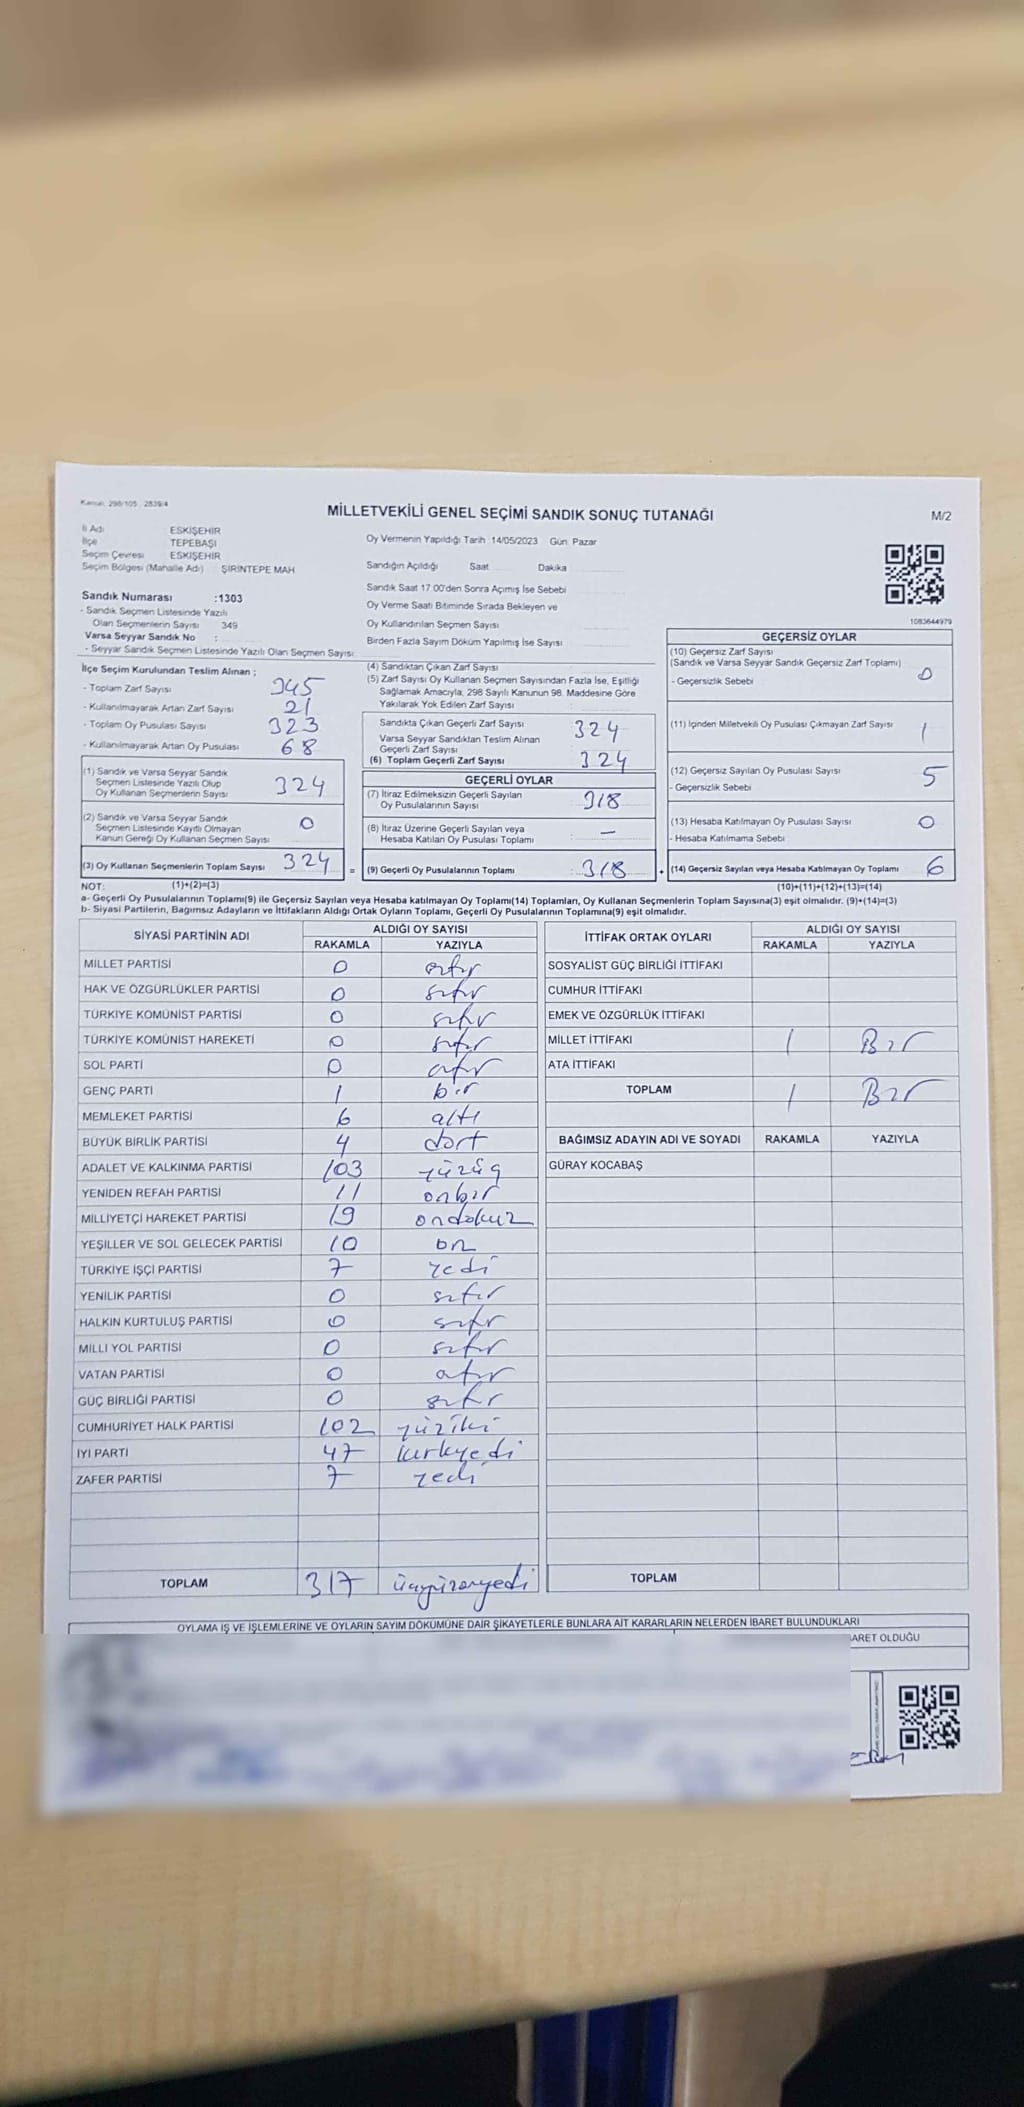 Kanun: 298/105 , 2839/4
MİLLETVEKİLİ GENEL SEÇİMİ SANDIK SONUÇ TUTANAĞI
M/2
İl Adı : ESKİŞEHİR
İlçe : TEPEBAŞI
Seçim Çevresi : ESKİŞEHİR
Seçim Bölgesi (Mahalle Adı) : ŞİRİNTEPE MAH
Oy Vermenin Yapıldığı Tarih :14/05/2023 Gün: Pazar
Sandığın Açıldığı Saat Dakika
Sandık Saat 17:00'den Sonra Açımış İse Sebebi
Oy Verme Saati Bitiminde Sırada Bekleyen ve
Oy Kullandırılan Seçmen Sayısı
Birden Fazla Sayım Döküm Yapılmış İse Sayısı
1083644979
Sandık Numarası :1303
- Sandık Seçmen Listesinde Yazılı
Olan Seçmenlerin Sayısı 349
Varsa Seyyar Sandık No :
- Seyyar Sandık Seçmen Listesinde Yazılı Olan Seçmen Sayısı:
İlçe Seçim Kurulundan Teslim Alınan ;
- Toplam Zarf Sayısı 345
- Kullanılmayarak Artan Zarf Sayısı 21
- Toplam Oy Pusulası Sayısı 323
- Kullanılmayarak Artan Oy Pusulası 68
(1) Sandık ve Varsa Seyyar Sandık
Seçmen Listesinde Yazılı Olup
Oy Kullanan Seçmenlerin Sayısı 324
(2) Sandık ve Varsa Seyyar Sandık
Seçmen Listesinde Kayıtlı Olmayan
Kanun Gereği Oy Kullanan Seçmen Sayısı 0
(3) Oy Kullanan Seçmenlerin Toplam Sayısı 324
(4) Sandıktan Çıkan Zarf Sayısı
(5) Zarf Sayısı Oy Kullanan Seçmen Sayısından Fazla İse, Eşitliği
Sağlamak Amacıyla, 298 Sayılı Kanunun 98. Maddesine Göre
Yakılarak Yok Edilen Zarf Sayısı
Sandıkta Çıkan Geçerli Zarf Sayısı 324
Varsa Seyyar Sandıktan Teslim Alınan
Geçerli Zarf Sayısı
(6) Toplam Geçerli Zarf Sayısı 324
GEÇERLİ OYLAR
(7) İtiraz Edilmeksizin Geçerli Sayılan
Oy Pusulalarının Sayısı 318
(8) İtiraz Üzerine Geçerli Sayılan veya
Hesaba Katılan Oy Pusulası Toplamı : —
= (9) Geçerli Oy Pusulalarının Toplamı : 318
GEÇERSİZ OYLAR
(10) Geçersiz Zarf Sayısı
(Sandık ve Varsa Seyyar Sandık Geçersiz Zarf Toplamı) 0
- Geçersizlik Sebebi
(11) İçinden Milletvekili Oy Pusulası Çıkmayan Zarf Sayısı 1
(12) Geçersiz Sayılan Oy Pusulası Sayısı 5
- Geçersizlik Sebebi
(13) Hesaba Katılmayan Oy Pusulası Sayısı 0
- Hesaba Katılmama Sebebi
+ (14) Geçersiz Sayılan veya Hesaba Katılmayan Oy Toplamı 6
NOT: (1)+(2)=(3)
(10)+(11)+(12)+(13)=(14)
a- Geçerli Oy Pusulalarının Toplamı(9) ile Geçersiz Sayılan veya Hesaba katılmayan Oy Toplamı(14) Toplamları, Oy Kullanan Seçmenlerin Toplam Sayısına(3) eşit olmalıdır. (9)+(14)=(3)
b- Siyasi Partilerin, Bağımsız Adayların ve İttifakların Aldığı Ortak Oyların Toplamı, Geçerli Oy Pusulalarının Toplamına(9) eşit olmalıdır.
SİYASİ PARTİNİN ADI ALDIĞI OY SAYISI
RAKAMLA YAZIYLA
MİLLET PARTİSİ 0 sıfır
HAK VE ÖZGÜRLÜKLER PARTİSİ 0 sıfır
TÜRKİYE KOMÜNİST PARTİSİ 0 sıfır
TÜRKİYE KOMÜNİST HAREKETİ 0 sıfır
SOL PARTİ 0 sıfır
GENÇ PARTİ 1 bir
MEMLEKET PARTİSİ 6 altı
BÜYÜK BİRLİK PARTİSİ 4 dört
ADALET VE KALKINMA PARTİSİ 103 yüzüç
YENİDEN REFAH PARTİSİ 11 onbir
MİLLİYETÇİ HAREKET PARTİSİ 19 ondokuz
YEŞİLLER VE SOL GELECEK PARTİSİ 10 on
TÜRKİYE İŞÇİ PARTİSİ 7 yedi
YENİLİK PARTİSİ 0 sıfır
HALKIN KURTULUŞ PARTİSİ 0 sıfır
MİLLİ YOL PARTİSİ 0 sıfır
VATAN PARTİSİ 0 sıfır
GÜÇ BİRLİĞİ PARTİSİ 0 sıfır
CUMHURİYET HALK PARTİSİ 102 yüziki
İYİ PARTİ 47 kırkyedi
ZAFER PARTİSİ 7 yedi
TOPLAM 317 üçyüzonyedi
İTTİFAK ORTAK OYLARI ALDIĞI OY SAYISI
RAKAMLA YAZIYLA
SOSYALİST GÜÇ BİRLİĞİ İTTİFAKI
CUMHUR İTTİFAKI
EMEK VE ÖZGÜRLÜK İTTİFAKI
MİLLET İTTİFAKI 1 Bir
ATA İTTİFAKI
TOPLAM 1 Bir
BAĞIMSIZ ADAYIN ADI VE SOYADI RAKAMLA YAZIYLA
GÜRAY KOCABAŞ
TOPLAM
OYLAMA İŞ VE İŞLEMLERİNE VE OYLARIN SAYIM DÖKÜMÜNE DAİR ŞİKAYETLERLE BUNLARA AİT KARARLARIN NELERDEN İBARET BULUNDUKLARI
BARET OLDUĞU